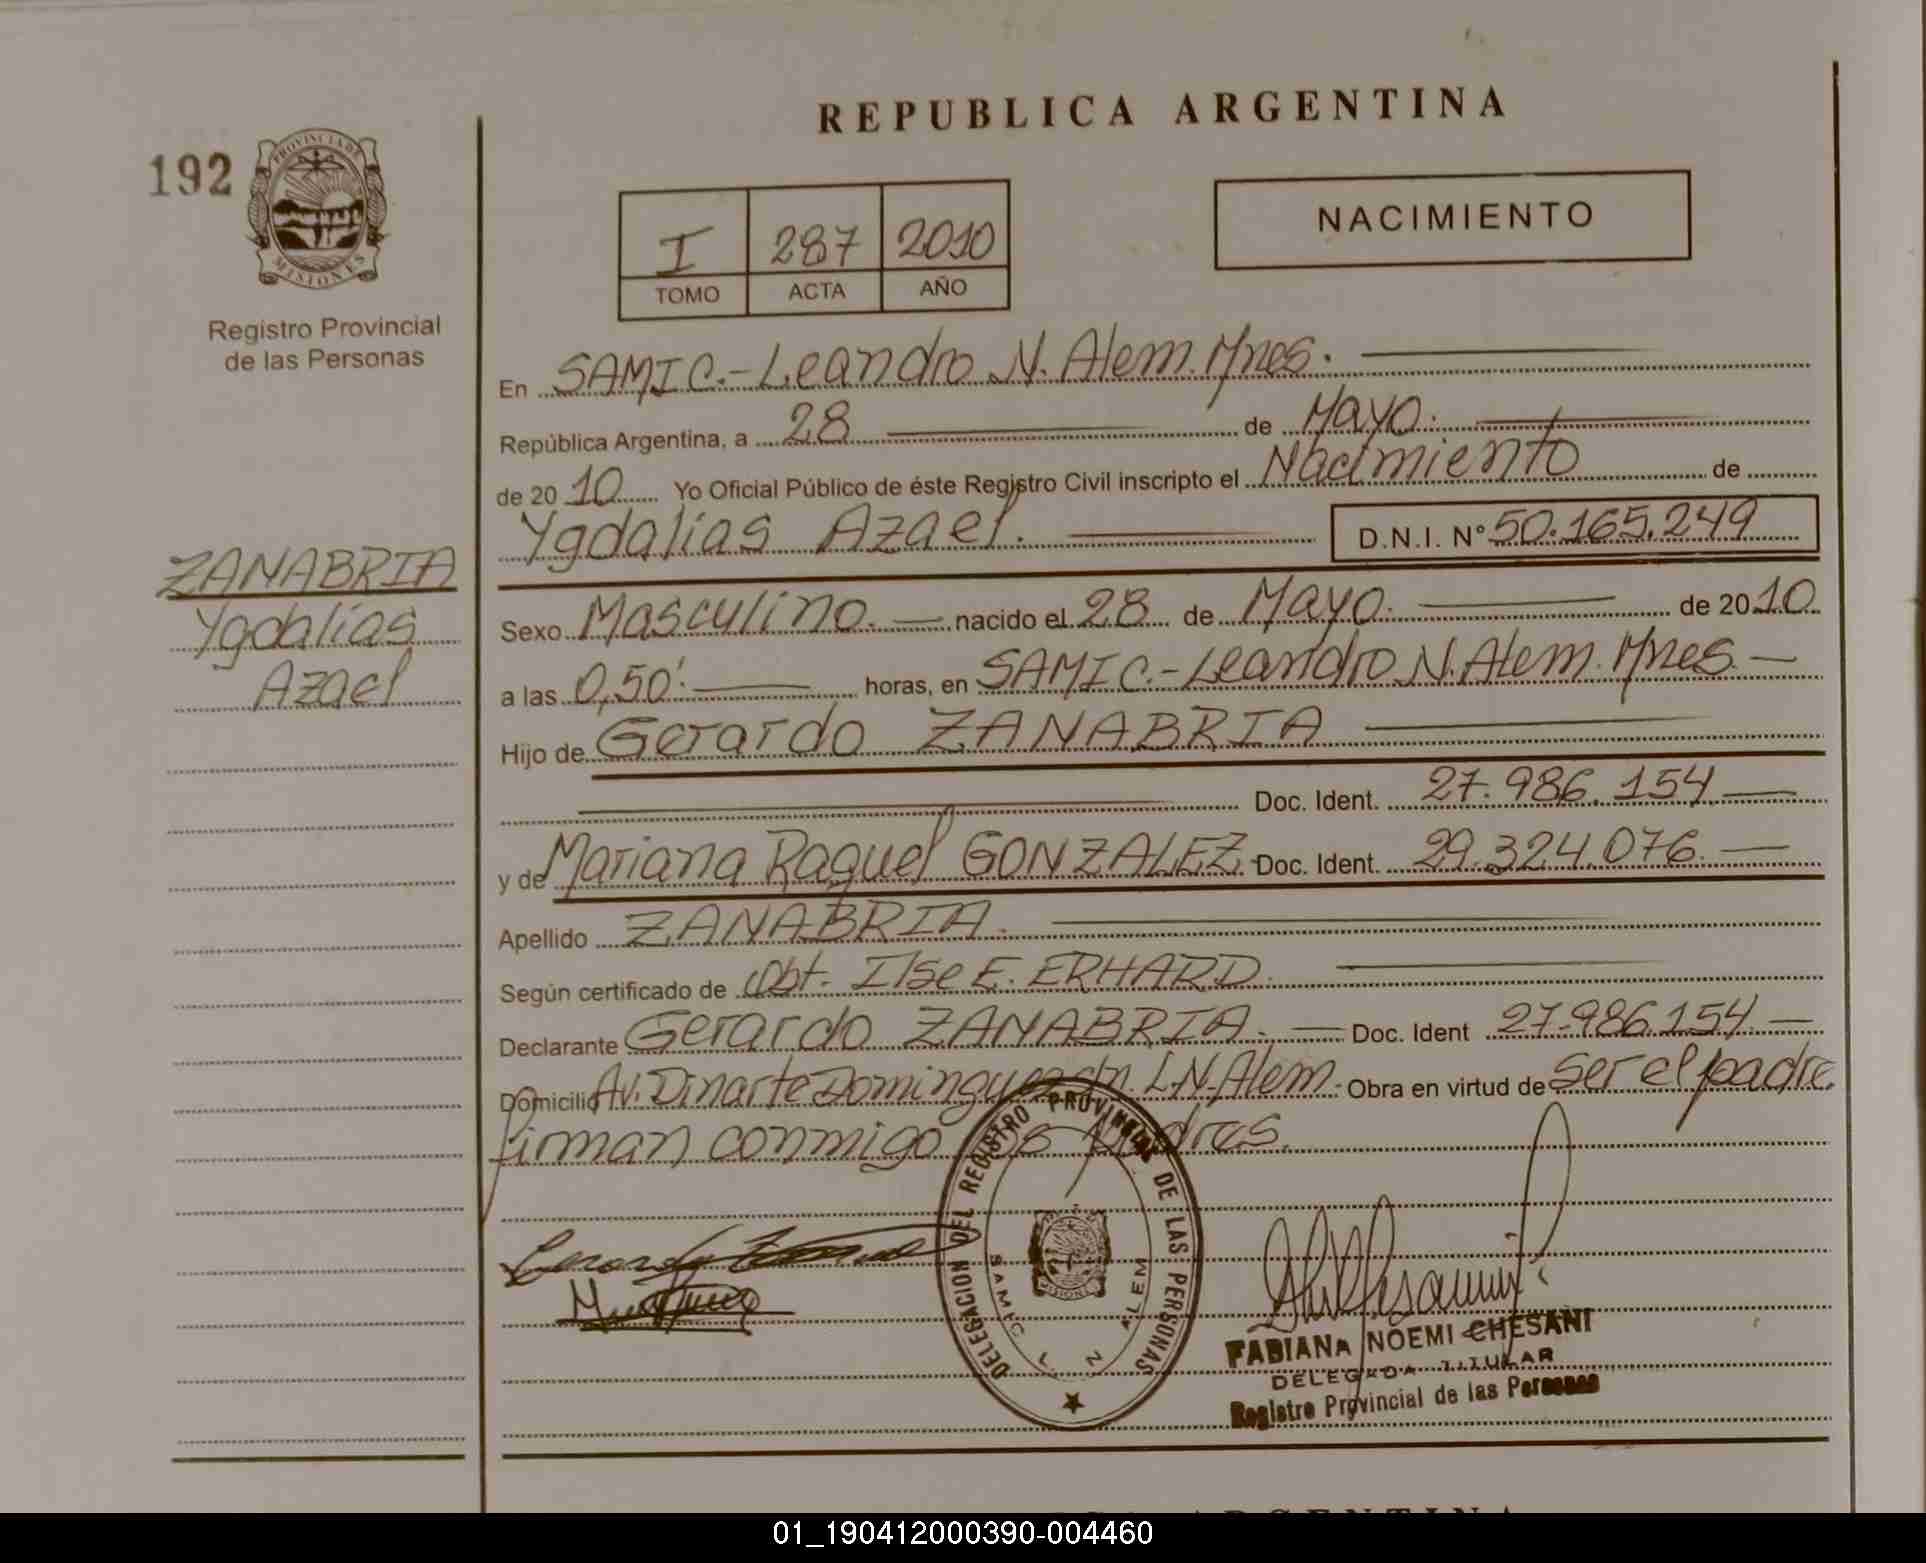 REPUBLICA ARGENTINA
192
PROVINCIA DE
MISIONES
Registro Provincial
de las Personas
I 287 2010
TOMO ACTA AÑO
NACIMIENTO
En SAMIC.- Leandro N. Alem. Mnes.
República Argentina, a 28 de Mayo.
de 2010 Yo Oficial Público de éste Registro Civil inscripto el Nacimiento de
Ygdalias Azael. D.N.I. Nº 50.165.249
ZANABRIA
Ygdalias
Azael
Sexo Masculino. nacido el 28 de Mayo. de 2010
a las 0,50'. horas, en SAMIC.- Leandro N. Alem. Mnes.
Hijo de Gerardo ZANABRIA
Doc. Ident. 27.986.154
y de Mariana Raquel GONZALEZ Doc. Ident. 29.324.076.
Apellido ZANABRIA.
Según certificado de Obt. Ilse E. ERHARD.
Declarante Gerardo ZANABRIA. Doc. Ident 27.986.154
Domicilio Av. Dinarte Dominguez L.N. Alem. Obra en virtud de ser el padre.
firman conmigo los padres.
DELEGACION DEL REGISTRO PROVINCIAL DE LAS PERSONAS
SAMIC L. N. ALEM
MISIONES
FABIANA NOEMI CHESANI
DELEGADA TITULAR
Registro Provincial de las Personas
ARGENTINA
01_190412000390-004460